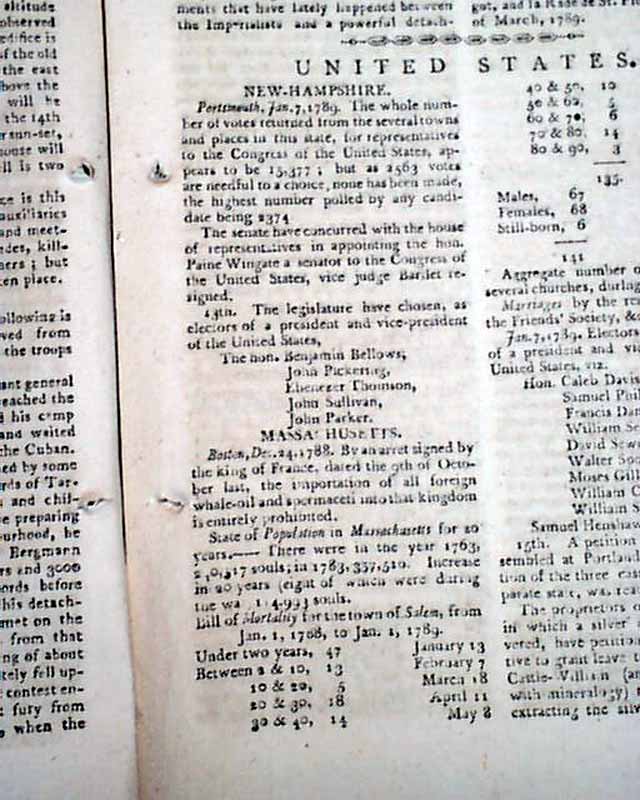 altitude
observed
edifice is
of the old
the east
above the
will be
the 14th
r sun-set,
house will
ll is two
ce is this
auxiliaries
and meet-
edes, kill-
ners ; but
ken place.
ollowing is
oved from
the troops
ant general
reached the
d his camp
and waited
the Cuban.
ned by some
rds of Tar-
s and chil-
e preparing
ourhood, he
Bergmann
rs and 3000
ords before
his detach-
met on the
from that
ng of about
tely fell up-
contest en-
fury from
s when the
ments that have lately happened between
the Imperialists and a powerful detach-
UNITED STATES.
NEW-HAMPSHIRE.
Portsmouth, Jan. 7, 1789. The whole num-
ber of votes returned from the several towns
and places in this state, for representatives
to the Congress of the United States, ap-
pears to be 15,377 ; but as 2563 votes
are needful to a choice, none has been made,
the highest number polled by any candi-
date being 2374
The senate have concurred with the house
of representatives in appointing the hon.
Paine Wingate a senator to the Congress of
the United States, vice judge Bartlet re-
signed.
13th. The legislature have chosen, as
electors of a president and vice-president
of the United States,
The hon. Benjamin Bellows,
John Pickering,
Ebenezer Thomson,
John Sullivan,
John Parker.
MASSACHUSETTS.
Boston, Dec. 24, 1788. By an arret signed by
the king of France, dated the 9th of Octo-
ber last, the importation of all foreign
whale-oil and spermaceti into that kingdom
is entirely prohibited.
State of Population in Massachusetts for 20
years.—— There were in the year 1763,
souls; in 1783, 357,510. Increase
in 20 years (eight of which were during
the souls.
Bill of Mortality for the town of Salem, from
Jan. 1, 1788, to Jan. 1, 1789.
Under two years, 47 January 13
Between 2 & 10, 13 February 7
10 & 20, 5 March 18
20 & 30, 18 April 11
30 & 40, 14 May 8
got, and la Rade de St.
of March, 1789.
40 & 50, 10
50 & 60, 5
60 & 70, 6
70 & 80, 14
80 & 90, 3
135.
Males, 67
Females, 68
Still-born, 6
141
Aggregate number o
several churches, during
Marriages by the re
the Friends' Society, &c
Jan. 7, 1789. Elector
of a president and vic
United States, viz.
Hon. Caleb Davis
Samuel Phil
Francis Dan
William Se
David Sew
Walter Spo
Moses Gill
William C
William S
Samuel Henshaw
15th. A petition
sembled at Portland
tion of the three eas
parate state, was rea
The proprietors o
in which a silver
vered, have petition
tive to grant leave t
Castle-William (an
with mineralogy) t
extracting the silv